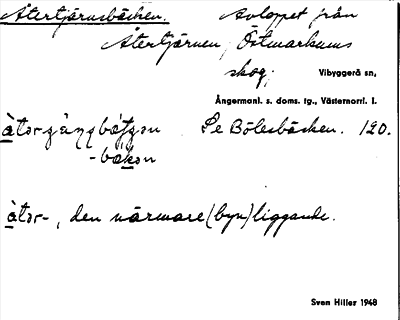 Återtjärnsbäcken. Avloppet från
Återtjärnen, Östmarkums
skog,
Vibyggerå sn,
Ångermanl. s. doms. tg., Västernorrl. l.
Se Bölesbäcken. 120.
åtər-, den närmare (byn) liggande.
Sven Hiller 1948